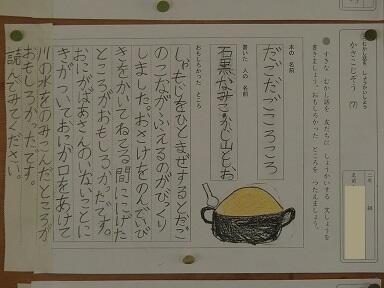 むかし話を しょうかいしよう
かさこじぞう (7)
二年 組
名前
すきな むかし話を 友だちに しょうかいする 文しょうを
書きましょう。おもしろかった ところを つたえましょう。
本の 名前
だごだごころころ
書いた 人の 名前
石黒なみこかじ山としお
おもしろかった ところ
しゃもじをひとまぜするとだご
のつながふえるのがびっくり
しました。おさけをのんでいび
きをかいてねてる間ににげた
ところがおもしろかったです。
おにがばあさんのいないことに
きがついておにが口をあけて
川の水をのみこんだところが
おもしろかったです。
読んでみてください。